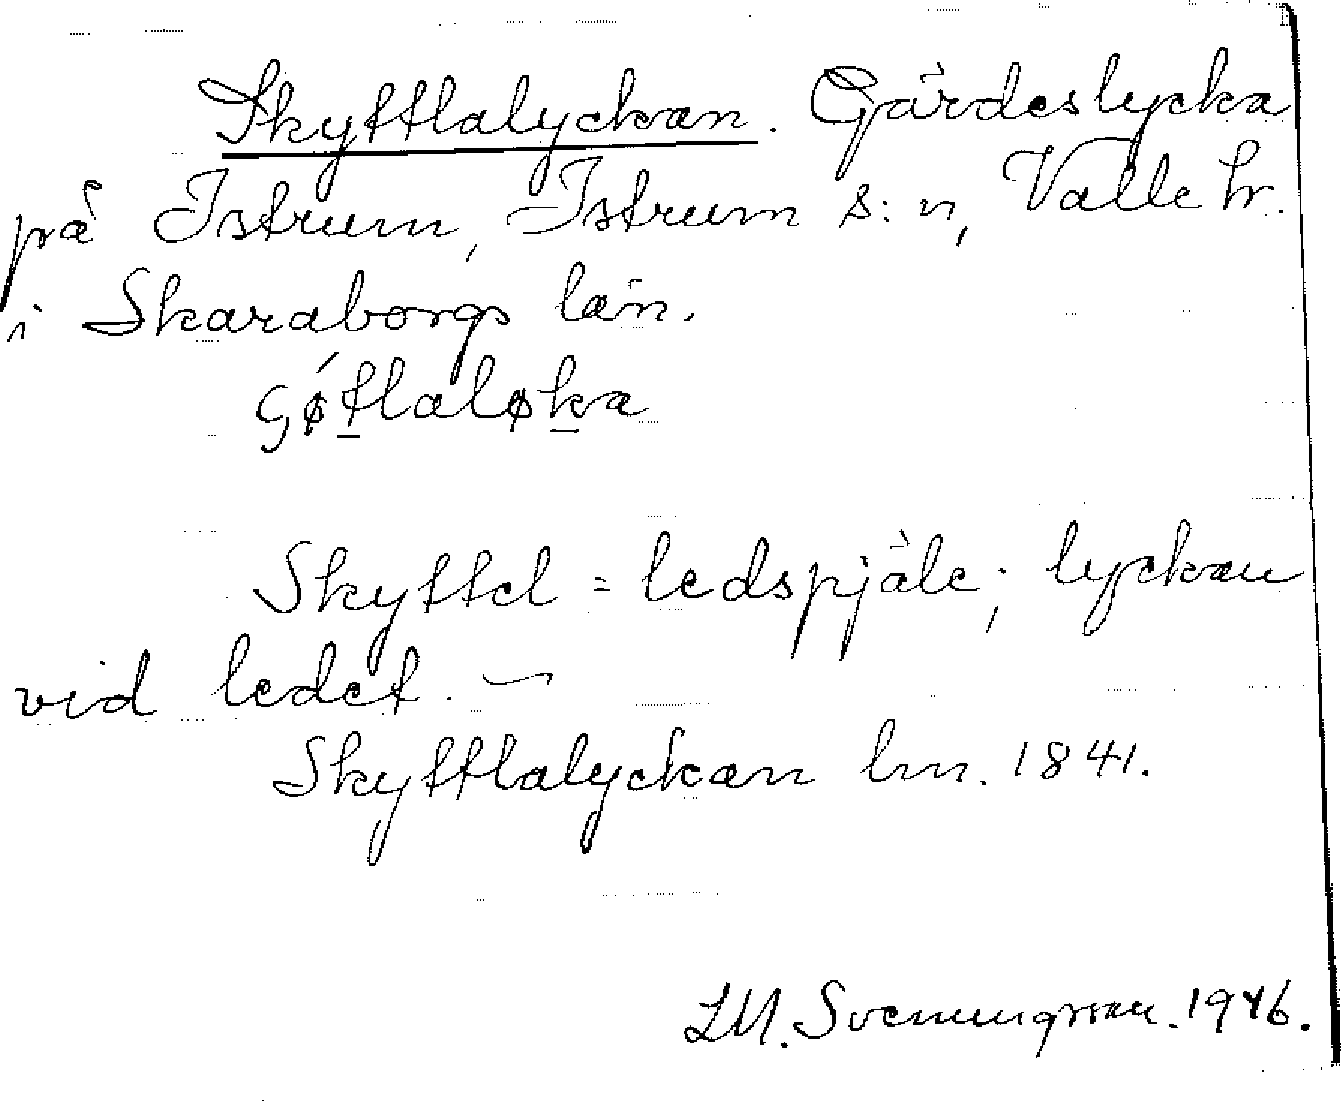 Skyttlalyckan. Gärdeslycka
på Istrum, Istrum s:n, Valle hr.
i Skaraborgs län.
ʂǿt̲laløk̲a
Skyttel = ledspjäle; lyckan
vid ledet. —
Skyttlalyckan lm. 1841.
LM. Svenungsson. 1946.